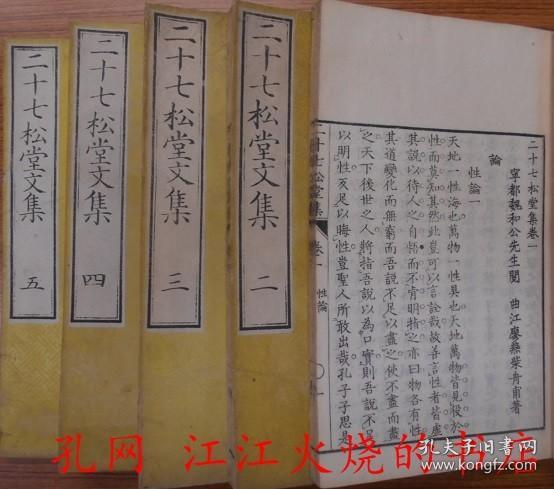 二十七松堂集卷一
寧都魏和公先生閱 曲江廖燕柴舟甫著
論
性論一
天地一性海也萬物一性具也天地萬物皆見役於
性而莫知其然此豈可以言詮哉故吾言性者皆虛
其說以待人之自悟而不肯明指之亦曰物各有性
其道變化而無窮而吾說不足以盡之使不盡而盡
之天下後世之人將指吾說以為口實則吾說不足
以明性足以晦性豈聖人所敢出哉孔子子思是
二十七松堂集 卷一 性論
二十七松堂文集 二
二十七松堂文集 三
二十七松堂文集 四
二十七松堂文集 五
孔网 江江火烧的书店
孔夫子旧书网
www.kongfz.com